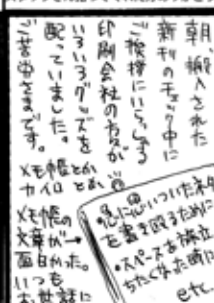 朝 搬入された
新刊のチェック中に
ご挨拶にいらっしゃる
印刷会社の方々が
いろいろグッズを
配っていました。
ご苦労さまです。
メモ帳とか
カイロとか
メモ帳の
文章が→
面白かった。
いつも
お世話に
・思いついたネタ
を書き留るために
・スペースを確立
ちたくなった時に
etc.